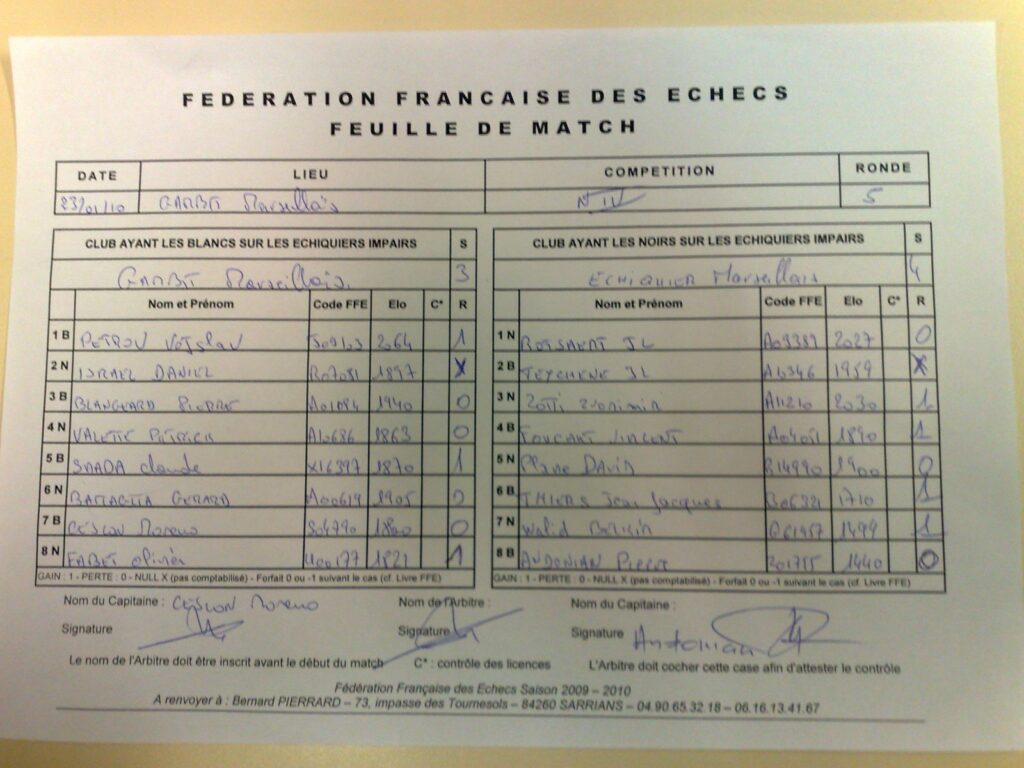 FEDERATION FRANCAISE DES ECHECS
FEUILLE DE MATCH
DATE LIEU COMPETITION RONDE
23/01/10 GAMBIT Marseillais N IV 5
CLUB AYANT LES BLANCS SUR LES ECHIQUIERS IMPAIRS S CLUB AYANT LES NOIRS SUR LES ECHIQUIERS IMPAIRS S
GAMBIT Marseillais 3 ECHIQUIER Marseillais 4
Nom et Prénom Code FFE Elo C* R Nom et Prénom Code FFE Elo C* R
1 B PETROV Vojslav J09103 2064 1 1 N JL A03389 2027 0
2 N ISRAEL DANIEL R07081 1897 X 2 B TEYCHENE JL A16346 1959 X
3 B BLANCHARD PIERRE A01094 1940 0 3 N Zotti A11210 2030 1
4 N VALETTE PATRICK A10686 1863 0 4 B FOUCART VINCENT A04051 1890 1
5 B SAADA claude X16397 1870 1 5 N DAVID B14990 1900 0
6 N BATTAGLIA GERARD A00619 1905 0 6 B THIERS Jean Jacques B06321 1710 1
7 B CESLON Moreno S04790 1800 0 7 N Walid G61457 1499 1
8 N FABET olivier H00177 1821 1 8 B ANDONIAN Pierre Z01755 1440 0
GAIN : 1 - PERTE : 0 - NULL X (pas comptabilisé) - Forfait 0 ou -1 suivant le cas (cf. Livre FFE) GAIN : 1 - PERTE : 0 - NULL X (pas comptabilisé) - Forfait 0 ou -1 suivant le cas (cf. Livre FFE)
Nom du Capitaine : CESLON Moreno Nom de l'Arbitre : Nom du Capitaine :
Signature Signature Signature Antonian
Le nom de l'Arbitre doit être inscrit avant le début du match C* : contrôle des licences L'Arbitre doit cocher cette case afin d'attester le contrôle
Fédération Française des Echecs Saison 2009 – 2010
A renvoyer à : Bernard PIERRARD – 73, impasse des Tournesols – 84260 SARRIANS – 04.90.65.32.18 – 06.16.13.41.67